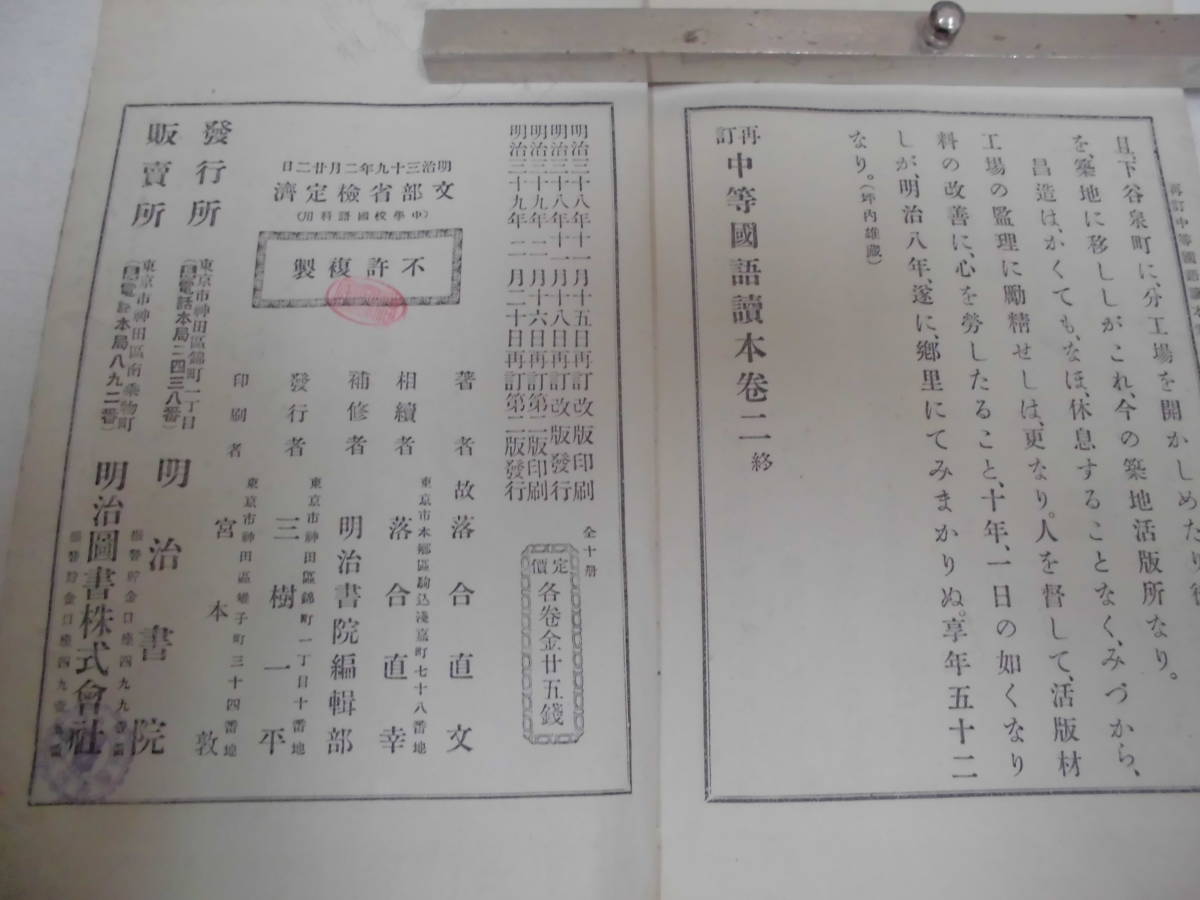 再訂中等國語讀本
且、下谷泉町に、分工場を開かしめたり
を、築地に移ししがこれ、今の築地活版所なり。
昌造は、かくても、なほ、休息することなく、みづから、
工場の監理に勵精せしは、更なり。人を督して、活版材
料の改善に、心を勞したること、十年、一日の如くなり
しが、明治八年、遂に、鄕里にてみまかりぬ。享年五十二
なり。(坪内雄藏)
再訂中等國語讀本卷二終
明治三十八年十一月十五日再訂改版印刷
明治三十八年十一月十八日再訂改版發行
明治三十九年二月十六日再訂第二版印刷
明治三十九年二月二十日再訂第二版發行
全十册
定價各卷金廿五錢
明治三十九年二月廿二日
文部省檢定濟
(中學校國語科用)
不許複製
著者故落合直文
東京市本鄕區駒込淺嘉町七十八番地
相續者落合直幸
補修者明治書院編輯部
東京市神田區錦町一丁目十番地
發行者三樹一平
東京市神田區 子町三十四番地
印刷者宮本敦
發行所
東京市神田區錦町一丁目
電話本局二四三八番
明治書院
振替貯金口座四九九 番
販賣所
東京市神田區南乘物町
電話本局八九二番
明治圖書株式會社
振替貯金口座四九